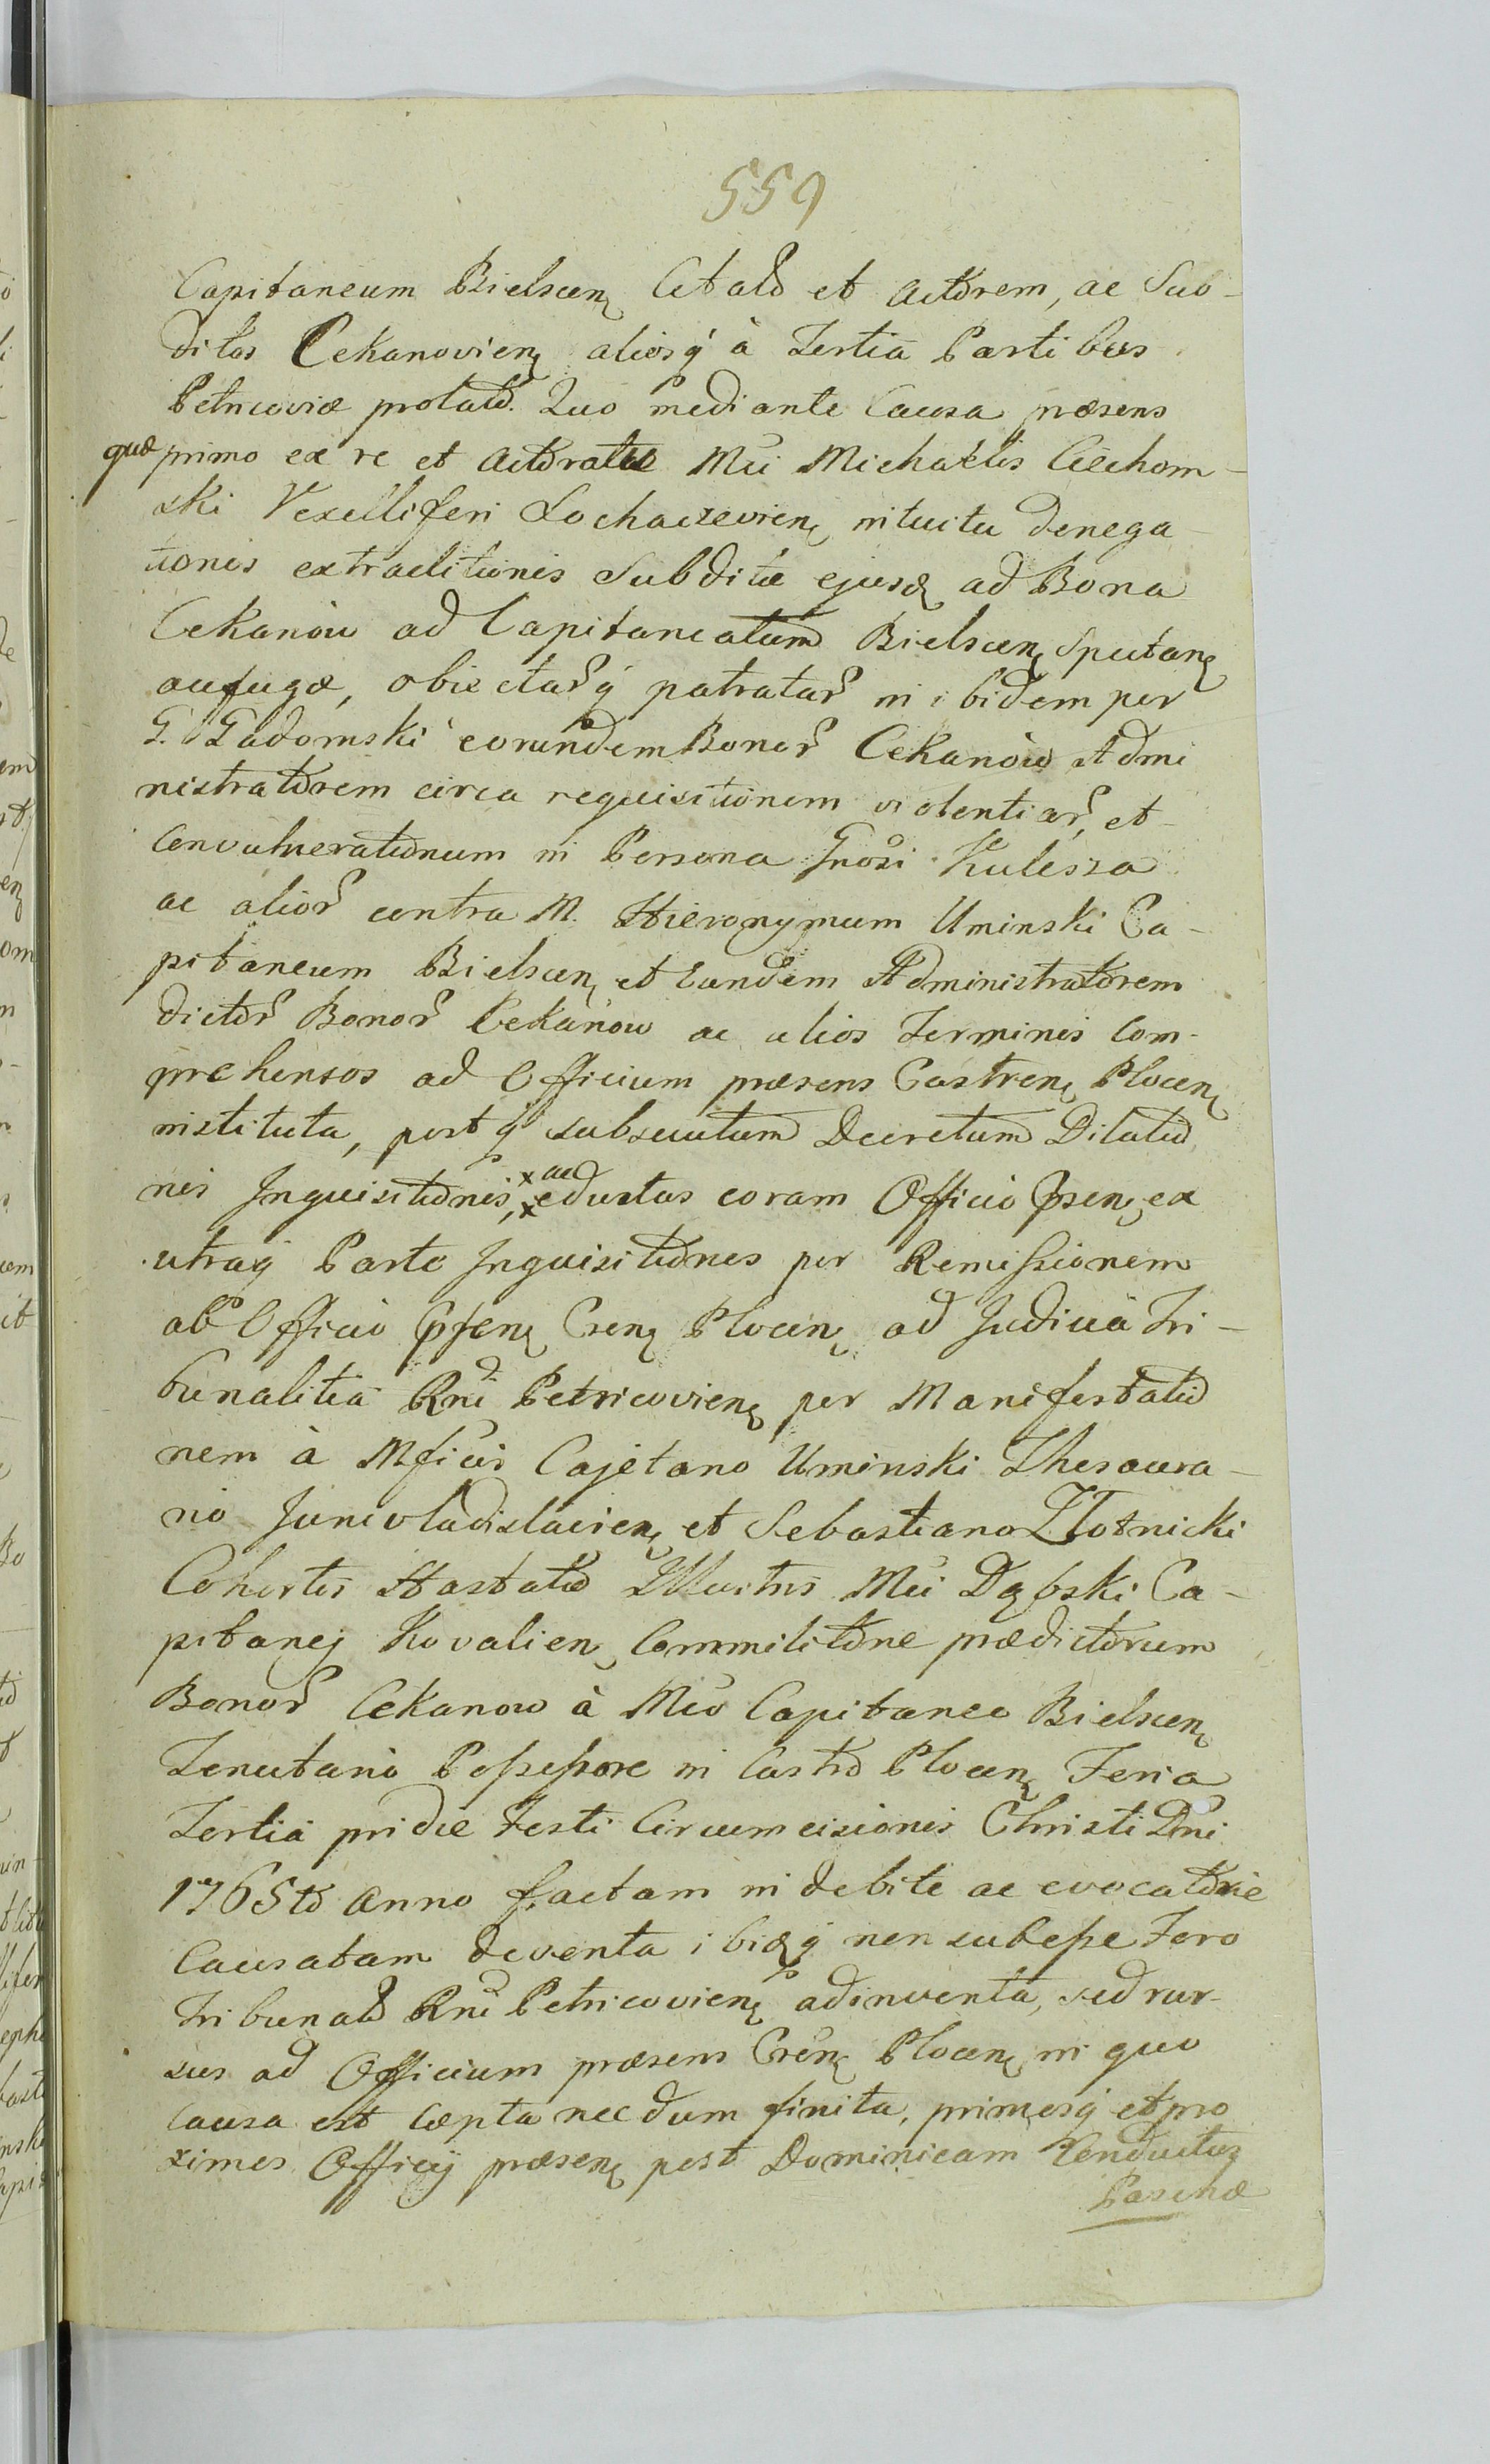 559
Capitaneum Bielscen Citatō et Actōrem, ac Sub-
ditos Cekanovien aliosq à Tertia Partibus
Petricoviæ prolatō. Quo mediante Causa præsens
quæ primo ex re et Actōratu Mci Michaelis Ciechom-
ski Vexelliferi Sochaczevien intuitu denega-
tionis extraditionis Subditæ ejusd ad Bona
Cekanów ad Capitaneatum Bielscen Spectan
aufugæ, obiectarq patratar in ibidem per
G. Gadomski eorundem Bonor Cekanów Admi
nistratōrem circa requisitionem violentiar, et
Convulneratōnum in Persona Gnosi Kulesza
ac alior contra M. Hieronymum Uminski Ca-
pitaneum Bielscen et Eundem Administratōrem
dictōr Bonor Cekanow ac alios Terminis Com-
prehensos ad Officium præsens Castren Plocen
instituta, postq subsecutum Decretum Dilatiō
nis Inquisitiōnis, x ac x eductas coram Officio Psen ex
utraq Parte Inquisitiōnes per Remissionem
ab Officio Psen Cren Plocen ad Judicia Tri-
bunalitia Rni Petricovien per Manifestatiō
nem à Mficis Cajetano Uminski Thesaura-
rio Junivladislavien et Sebastiano Złotnicki
Cohortis Hastatō Illustris Mci Dąbski Ca-
pitanej Kovalien Commilitōne prædictōrum
Bonor Cekanow à Mco Capitaneo Bielscen
Tenutario Possessore in Castrō Plocen Feria
Tertia pridie Festi Circumcisionis Christi Dni
1765tō Anno factam indebite ac evocatōrie
Causatam devento ibidq non subesse Foro
Tribunalō Rni Petricovien adinventa, sed rur-
sus ad Officium præsens Cren Plocen in quo
causa est cæpta necdum finita, primosq et pro
ximos Officij præsen post Dominicam Conductus
Paschæ